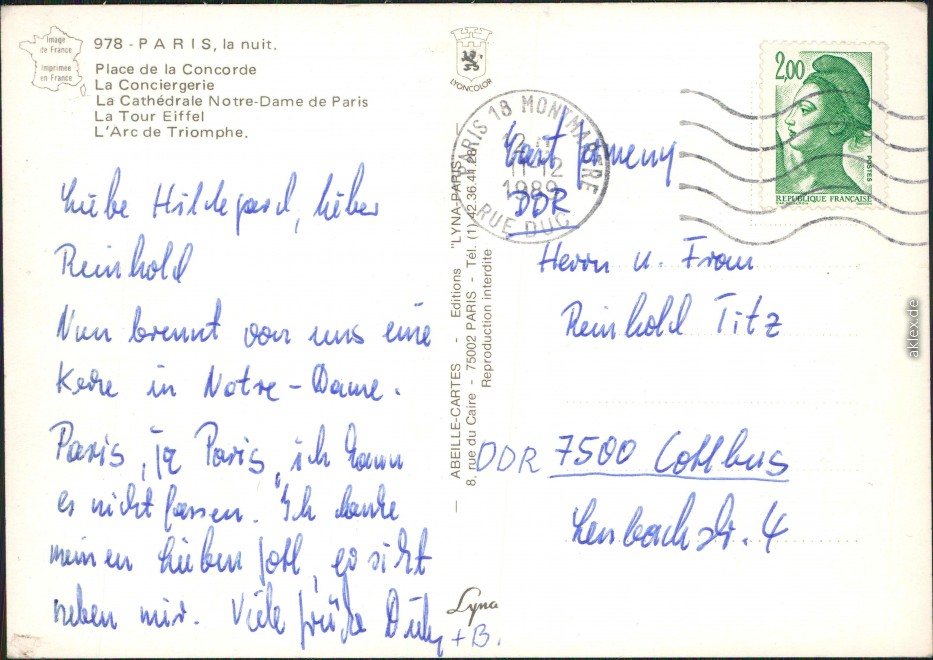 Image
de France
Imprimée
en France
978 - PARIS, la nuit.
Place de la Concorde
La Conciergerie
La Cathédrale Notre-Dame de Paris
La Tour Eiffel
L'Arc de Triomphe.
Liebe Hildegard, lieber
Reinhold
Nun brennt von uns eine
Kerze in Notre-Dame.
Paris, ja Paris, ich kann
es nicht fassen. Ich danke
meinen lieben Gott, er sitzt
neben mir. Viele Grüße
+ B.
LYONCOLOR
— ABEILLE-CARTES - Editions "LYNA-PARIS" —
8, rue du Caire - 75002 PARIS - Tél. (1) 42.36.41.28
Reproduction interdite
Lyna
PARIS 18 MONTMARTRE
11-12
1989
RUE DUC
2,00
POSTES
REPUBLIQUE FRANÇAISE
East Germany
DDR
Herrn u. Frau
Reinhold Titz
DDR 7500 Cottbus
Lenbachstr. 4
aklex.de